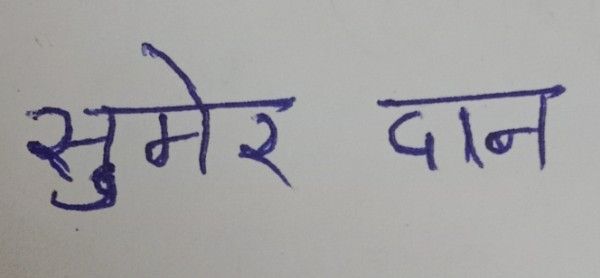 सुमेर दान